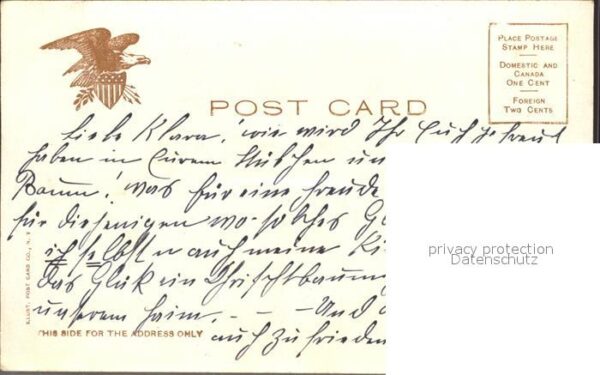 POST CARD
PLACE POSTAGE
STAMP HERE
DOMESTIC AND
CANADA
ONE CENT
FOREIGN
TWO CENTS
Liebe Klara! wie wird Ihr Euch gefreut
haben in Eurem Stübchen un
Baum! was für eine Freude
für diejenigen wo solches Gl
ich selbst u auch meine Ki
das Glük ein Christbaum
unserem Haim. - - - Und
auch zufrieden
ILLUST. POST CARD CO., N.Y.
THIS SIDE FOR THE ADDRESS ONLY
privacy protection
Datenschutz